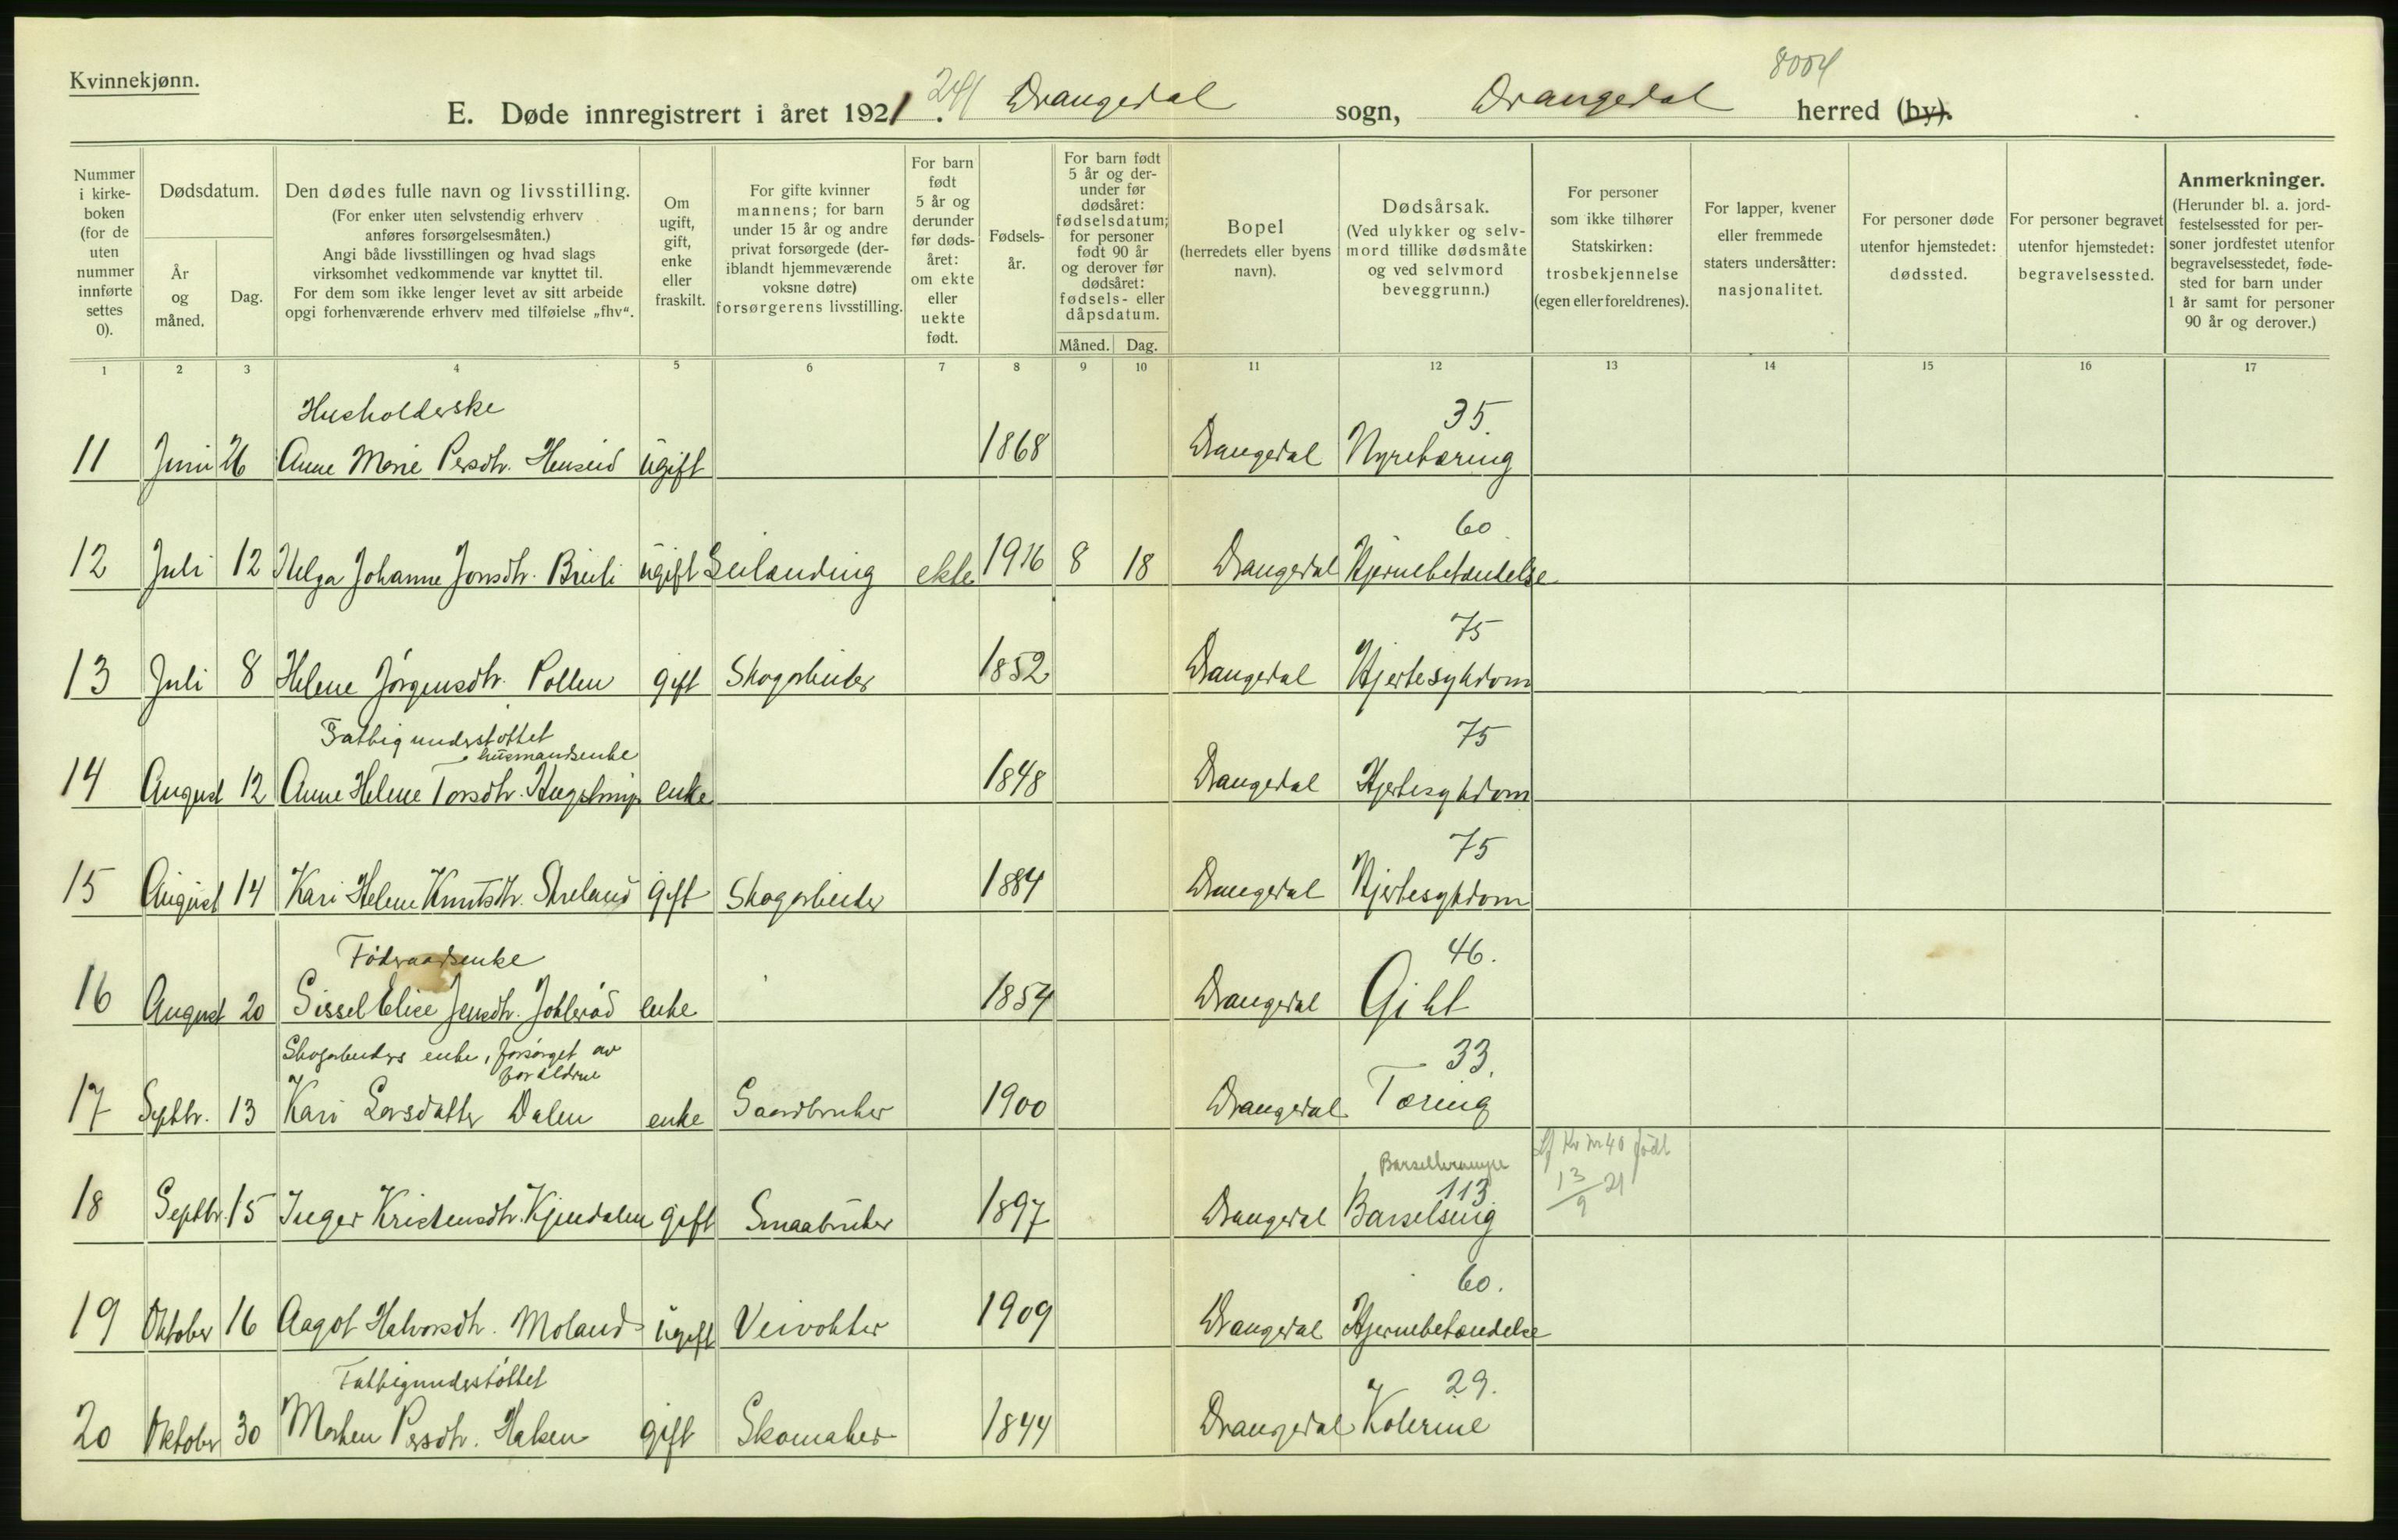 Kvinnekjønn.
E. Døde innregistrert i året 1921. 241 Drangedal sogn, Drangedal herred (by). 8004
Nummer i kirkeboken (for de uten nummer innførte settes 0).
Dødsdatum.
År og måned.
Dag.
Den dødes fulle navn og livsstilling.
(For enker uten selvstendig erhverv anføres forsørgelsesmåten.)
Angi både livsstillingen og hvad slags virksomhet vedkommende var knyttet til.
For dem som ikke lenger levet av sitt arbeide opgi forhenværende erhverv med tilføielse „fhv“.
Om ugift, gift, enke eller fraskilt.
For gifte kvinner mannens; for barn under 15 år og andre privat forsørgede (deriblandt hjemmeværende voksne døtre) forsørgerens livsstilling.
For barn født 5 år og derunder før dødsåret: om ekte eller uekte født.
Fødselsår.
For barn født 5 år og derunder før dødsåret: fødselsdatum; for personer født 90 år og derover før dødsåret: fødsels- eller dåpsdatum.
Måned. Dag.
Bopel (herredets eller byens navn).
Dødsårsak.
(Ved ulykker og selvmord tillike dødsmåte og ved selvmord beveggrunn.)
For personer som ikke tilhører Statskirken: trosbekjennelse (egen eller foreldrenes).
For lapper, kvener eller fremmede staters undersåtter: nasjonalitet.
For personer døde utenfor hjemstedet: dødssted.
For personer begravet utenfor hjemstedet: begravelsessted.
Anmerkninger.
(Herunder bl. a. jordfestelsessted for personer jordfestet utenfor begravelsesstedet, fødested for barn under 1 år samt for personer 90 år og derover.)
1 2 3 4 5 6 7 8 9 10 11 12 13 14 15 16 17
Husholderske 35.
11 Juni 26 Anne Marie Persdtr. Henseid ugift 1868 Drangedal Nyretæring
60
12 Juli 12 Helga Johanne Jonsdtr. Breili ugift Leilænding ekte 1916 8 18 Drangedal Hjernebetændelse
75
13 Juli 8 Helene Jörgensdtr. Pollen gift Skogarbeider 1852 Drangedal Hjertesykdom
Fattigunderstöttet husmandsenke 75
14 August 12 Anne Helene Torsdtr. enke 1848 Drangedal Hjertesykdom
75
15 August 14 Kari Helene Knutsdtr. gift Skogarbeider 1884 Drangedal Hjertesykdom
Födraadsenke 46.
16 August 20 Sissel Elise Jensdtr. enke 1854 Drangedal Gikt
Skogarbeiders enke, forsörget av forældrene 33.
17 Septbr. 13 Kari Larsdatter Dalen enke Gaardbruker 1900 Drangedal Tæring
Barselkrampe Lf Kv nr 40 födt
113 13/9 21
18 Septbr 15 Inger Kristensdtr. Kjendalen gift Smaabruker 1897 Drangedal Barselseng
60.
19 Oktober 16 Aagot Halvorsdtr. Moland ugift Veivokter 1909 Drangedal Hjernebetændelse
Fattigunderstöttet 29.
20 Oktober 30 Marken Persdtr. Haken gift Skomaker 1844 Drangedal Kolerine